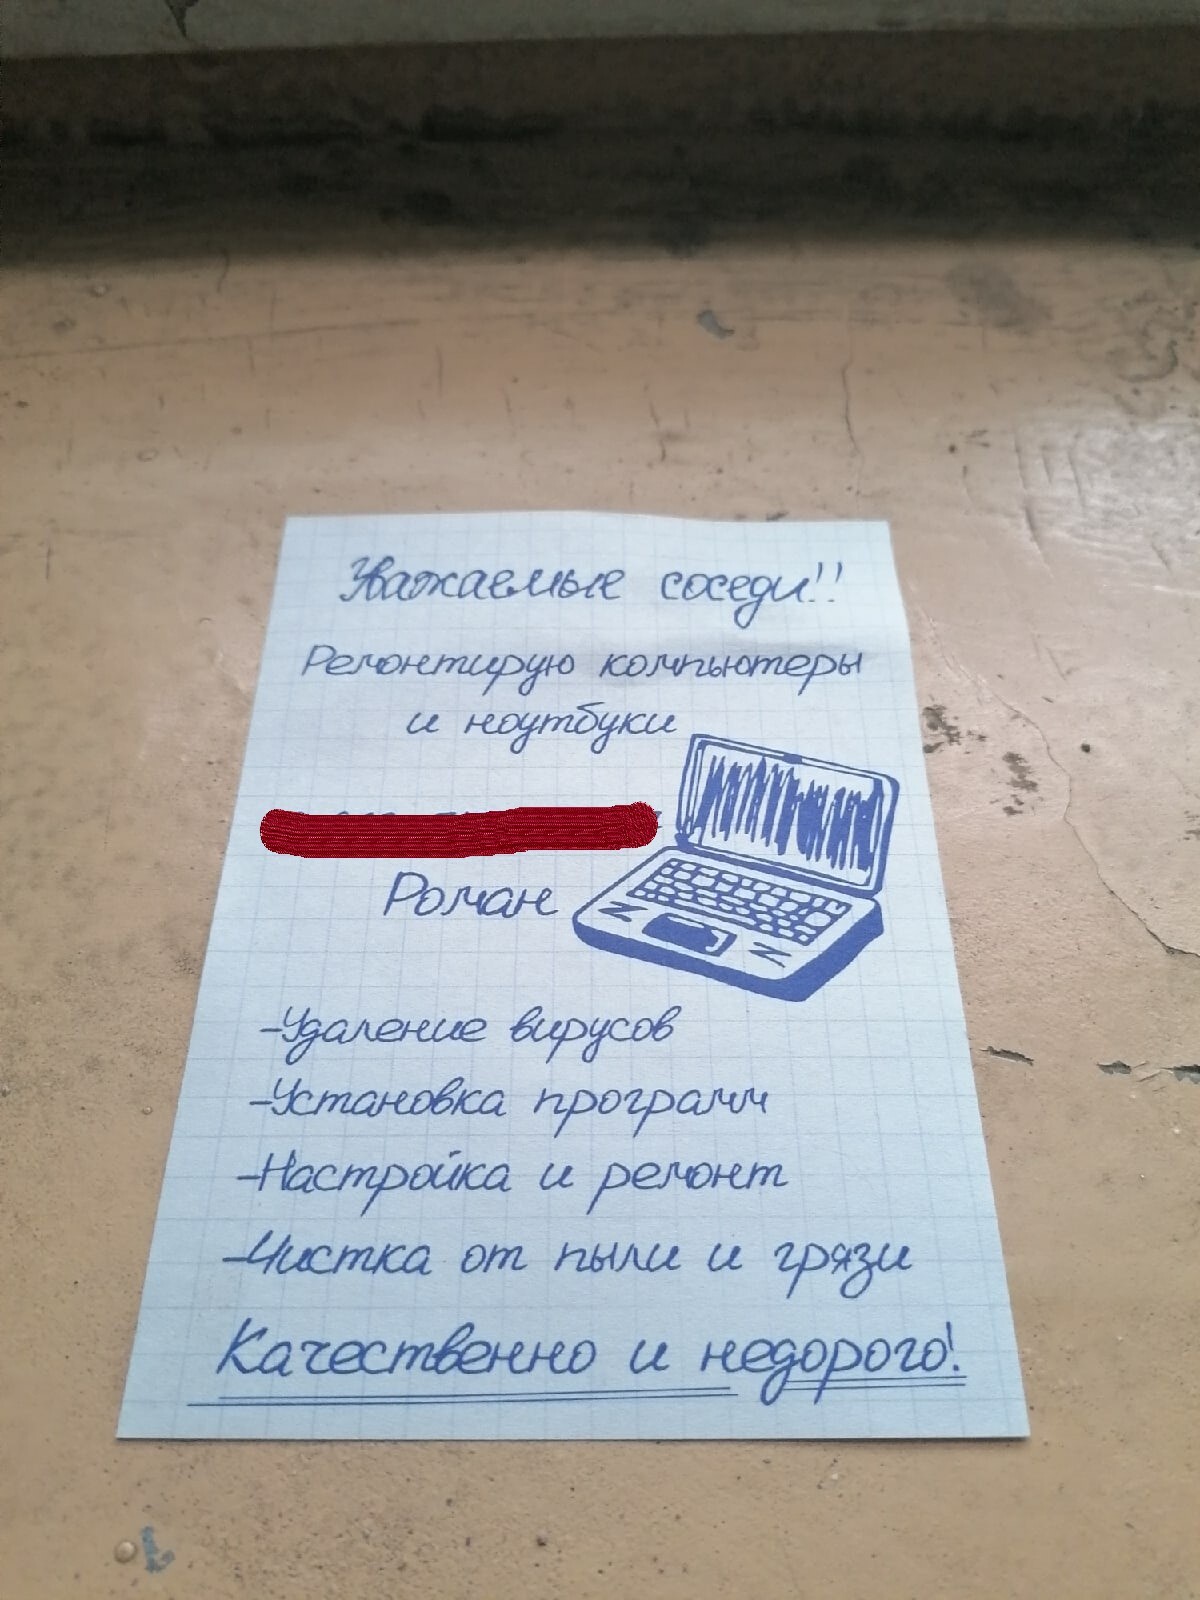 Уважаемые соседи!!
Ремонтирую компьютеры
и ноутбуки
Роман
-Удаление вирусов
-Установка программ
-Настройка и ремонт
-Чистка от пыли и грязи
Качественно и недорого!